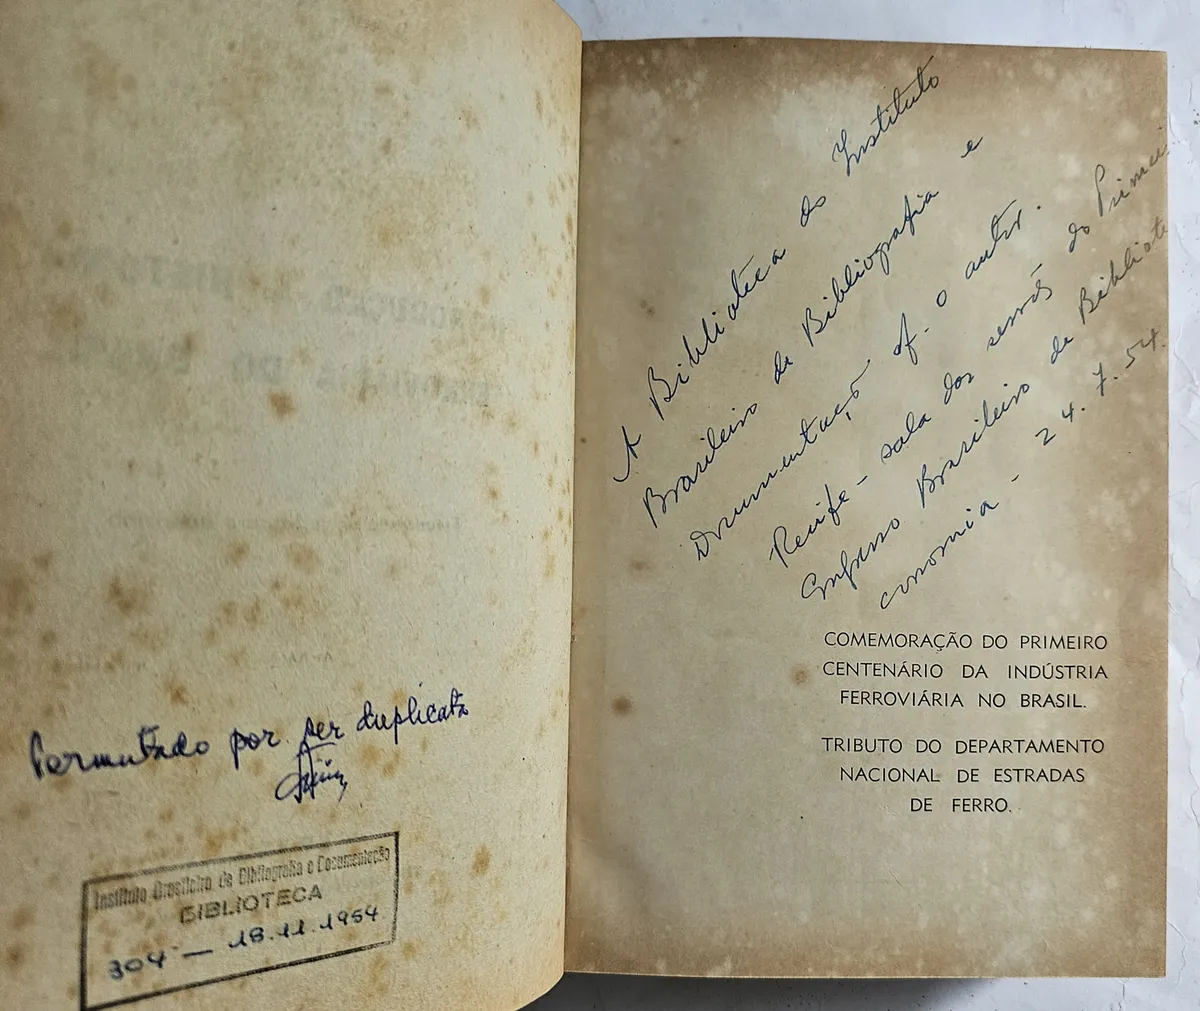 Permutado por ser duplicata
Instituto Brasileiro de Bibliografia e Documentação
BIBLIOTECA
304 — 18.11.1954
A Biblioteca do Instituto
Brasileiro de Bibliografia e
Documentação of. o autor.
Recife - sala das sessões do Primei
Congresso Brasileiro de Bibliote
conomia - 24.7.54.
COMEMORAÇÃO DO PRIMEIRO
CENTENÁRIO DA INDÚSTRIA
FERROVIÁRIA NO BRASIL.
TRIBUTO DO DEPARTAMENTO
NACIONAL DE ESTRADAS
DE FERRO.